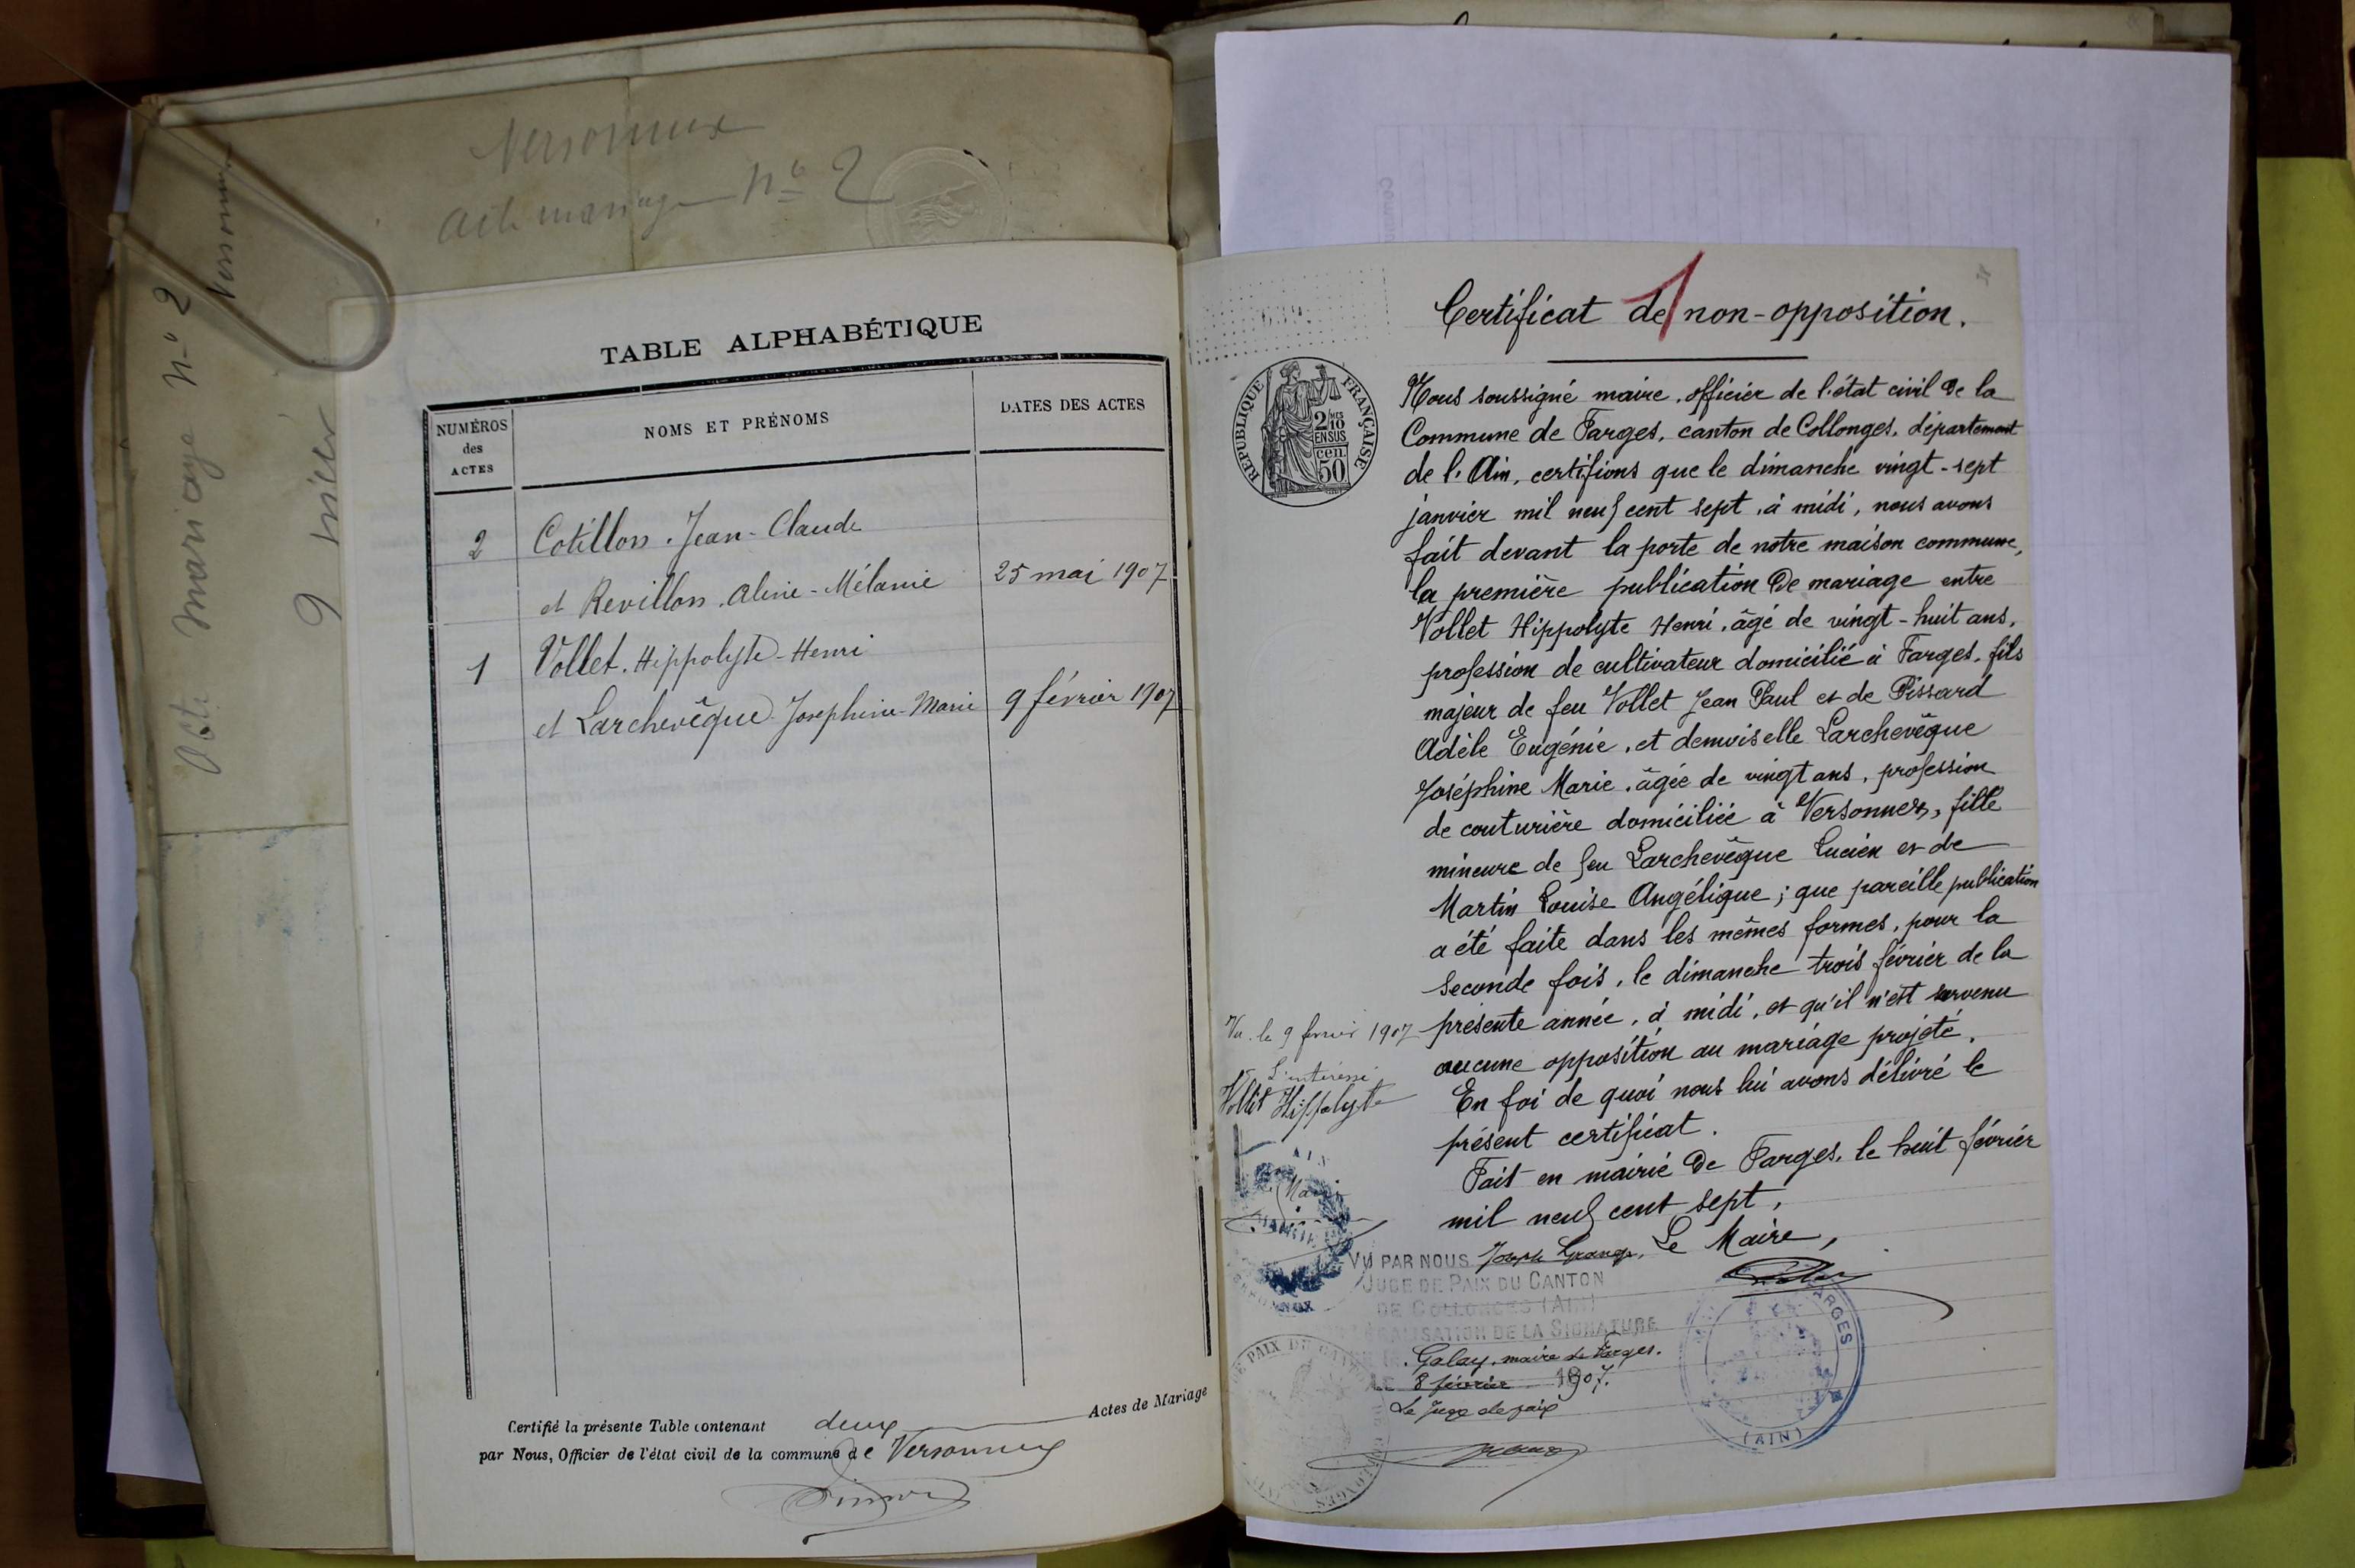 Versonnex
Acte mariage Nº 2
Acte mariage Nº 2
Versonnex
9
TABLE ALPHABÉTIQUE
NUMÉROS
des
ACTES
NOMS ET PRÉNOMS
DATES DES ACTES
2 Cotillon. Jean-Claude
et Revillon. Aline-Mélanie 25 mai 1907
1 Vollet. Hippolyte-Henri
et Larchevêque Josephine-Marie 9 février 1907
Certifié la présente Table contenant deux Actes de Mariage
par Nous, Officier de l'état civil de la commune de Versonnex
Certificat de non-opposition.
1
REPUBLIQUE FRANÇAISE
2/10 MES
EN SUS
cen.
50
Nous soussigné maire, officier de l'état civil de la
Commune de Farges, canton de Collonges, département
de l'Ain, certifions que le dimanche vingt-sept
janvier mil neuf cent sept, à midi, nous avons
fait devant la porte de notre maison commune,
la première publication de mariage entre
Vollet Hippolyte Henri, âgé de vingt-huit ans,
profession de cultivateur domicilié à Farges, fils
majeur de feu Vollet Jean Paul et de Pissard
Adèle Eugénie, et demoiselle Larchevêque
Joséphine Marie, âgée de vingt ans, profession
de couturière domiciliée à Versonnex, fille
mineure de feu Larchevêque Lucien et de
Martin Louise Angélique; que pareille publication
a été faite dans les mêmes formes, pour la
seconde fois, le dimanche trois février de la
présente année, à midi, et qu'il n'est survenu
aucune opposition au mariage projeté.
En foi de quoi nous lui avons délivré le
présent certificat.
Fait en mairie de Farges, le huit février
mil neuf cent sept,
Le Maire,
Vu le 9 février 1907
L'intéressé
Vollet Hippolyte
AIN
MAIRIE
VERSONNEX
VU PAR NOUS Joseph Grange,
JUGE DE PAIX DU CANTON
DE COLLONGES (AIN)
LÉGALISATION DE LA SIGNATURE
Galay, maire de Farges.
LE 8 février 1907.
Le Juge de paix
FARGES
(AIN)